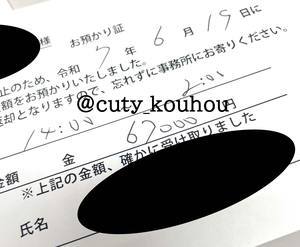 様 お預かり証
止のため、令和 7 年 6 月 19 日に
額をお預かりいたしました。
却となりますので、忘れずに事務所にお寄りください。
@cuty_kouhou
14:00 2:00
金額 金 67000 円
※上記の金額、確かに受け取りました
氏名